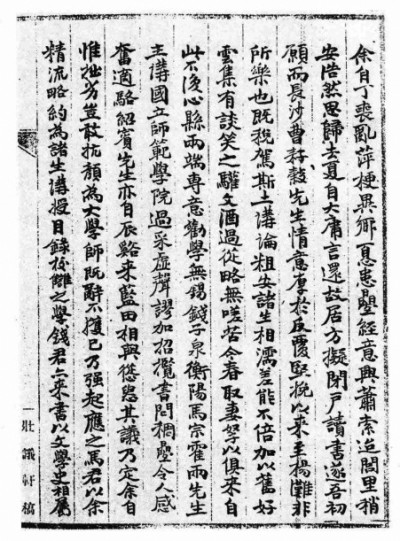 余自丁喪亂萍梗異鄉百慮患疊經意興蕭索迨閭里稍
安浩然思歸去夏自大庸言還故居方擬閉戶讀書遂吾初
願而長沙曹籽穀先生情意厚於反覆堅挽以來至楊灘非
所樂也既稅駕斯土講論粗安諸生相濡差能不倍加以舊好
雲集有談笑之驩文酒過從略無嗟苦今春取妻孥以俱來自
此不復心縣兩端專意勸學無錫錢子泉衡陽馬宗霍兩先生
主講國立師範學院過采虛聲謬加招攬書問稠疊令人感
奮適駱紹賓先生亦自辰谿來藍田相與慫恿其議乃定余自
惟拙劣豈敢抗顏為大學師既辭不獲已乃強起應之馬君以余
精流略約為諸生講授目錄校讎之學錢君亦來書以文學史相屬
壯議軒稿